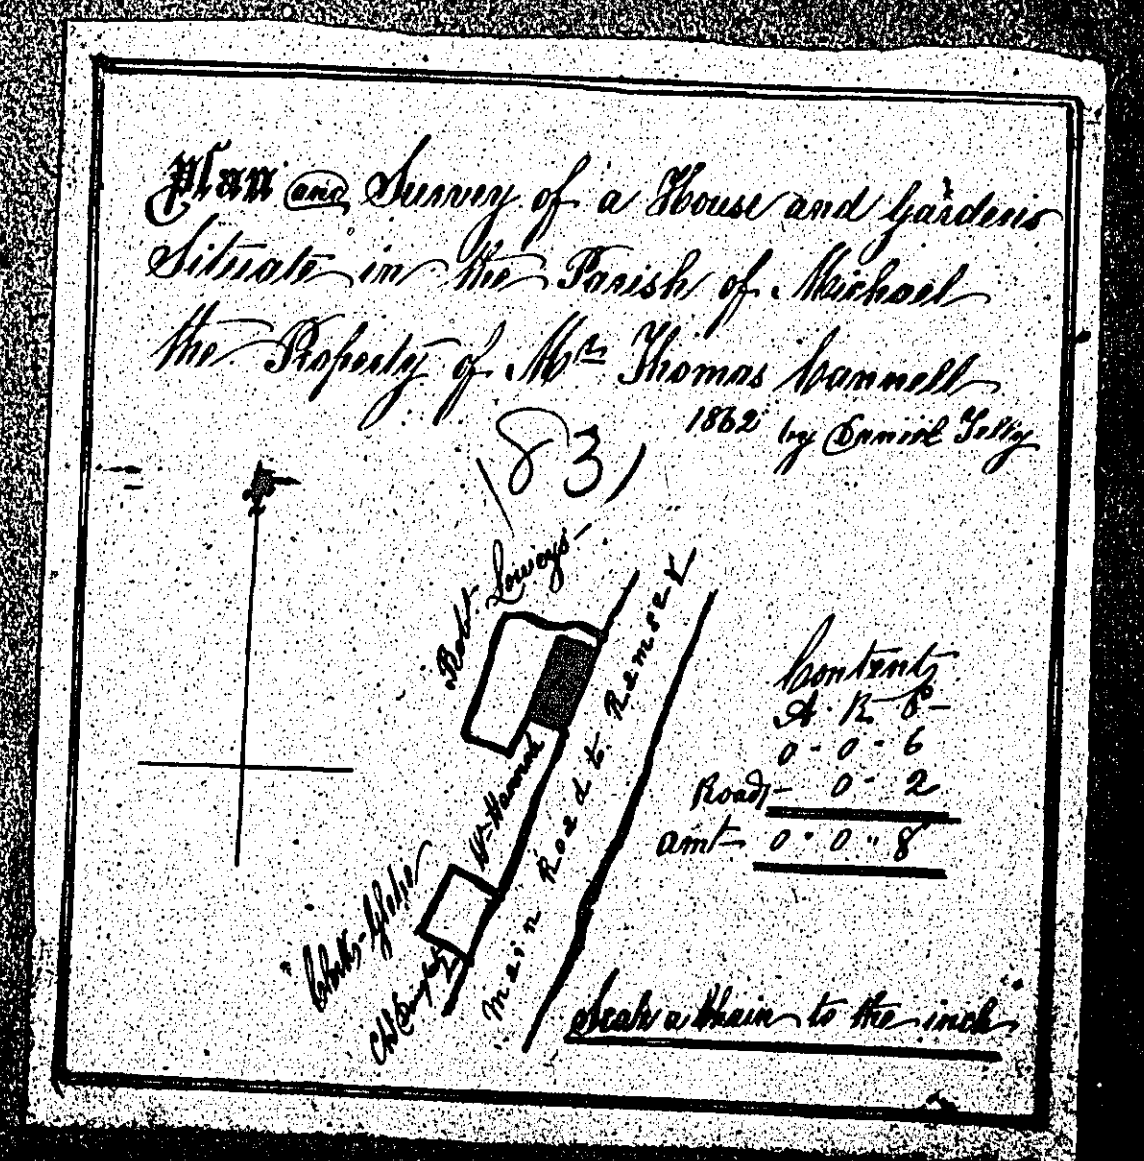 Plan and Survey of a House and Gardens
Situate in the Parish of Michael
the Property of Mrs Thomas Cannell
1862 by Daniel Telly
83
Robt Loweys
Wm
Main Road to Ramsey
Clark's Glebe
Content
A. R P
0 - 0 - 6
Road - 0 - 2
amt 0 - 0 - 8
Scale a Chain to the inch